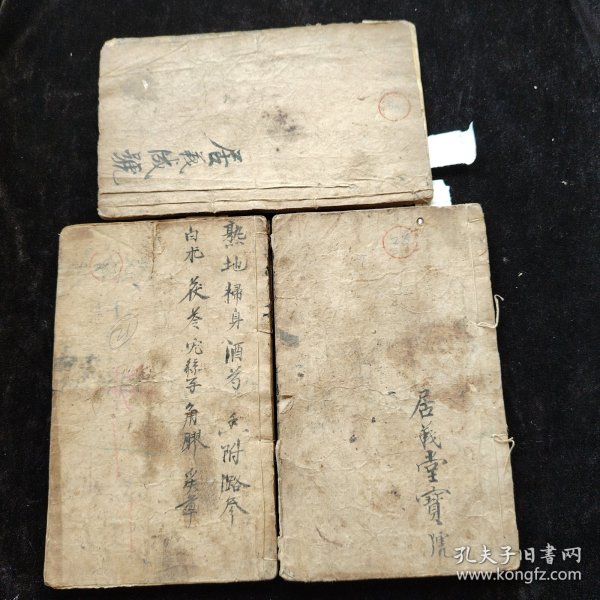 居義
熟地 歸身 酒芍 香附 潞參
白朮 茯苓 兔絲子 角膠 炙草
居義堂寶
孔夫子旧书网
www.kongfz.com